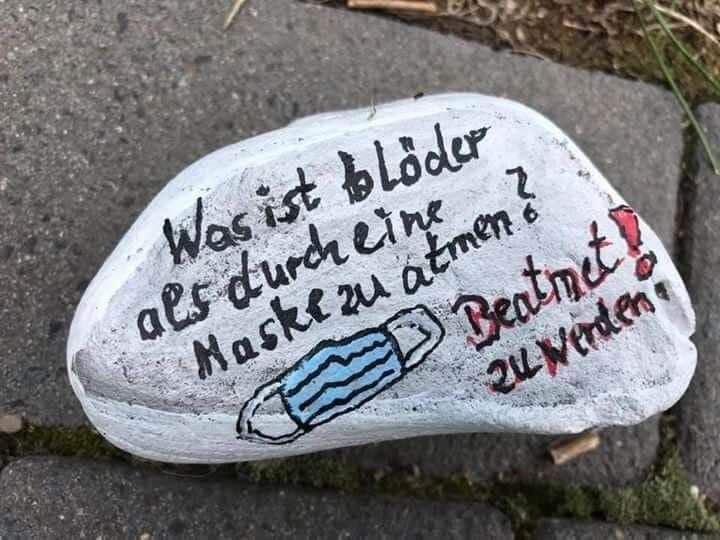 Was ist blöder
als durch eine
Maske zu atmen?
Beatmet
zu werden!